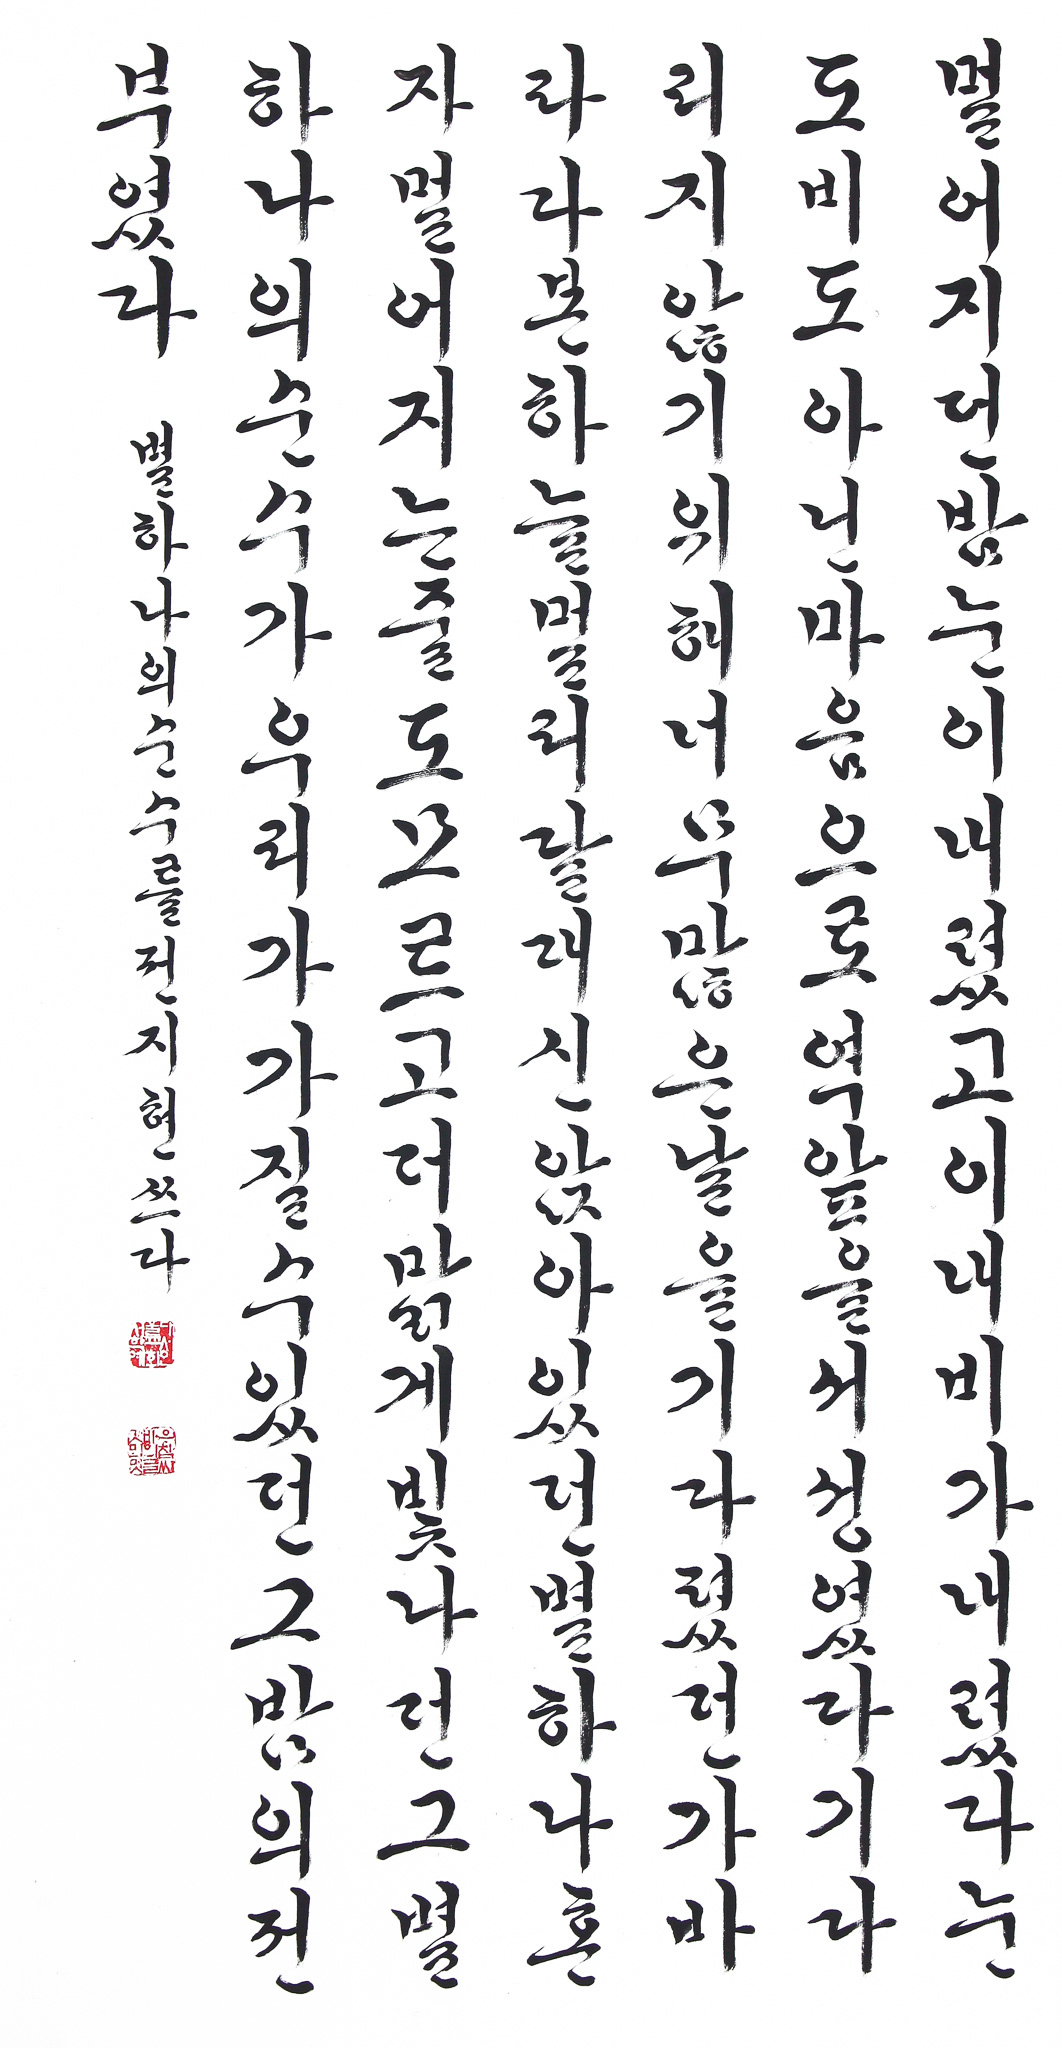 멀어지던밤눈이내렸고이내비가내렸다눈
도비도아닌마음으로역앞을서성였다기다
리지않기위해너무많은날을기다렸던가바
라다본하늘멀리달대신앉아있던별하나혼
자멀어지는줄도모르고더맑게빛나던그별
하나의순수가우리가가질수있던그밤의전
부였다
별하나의순수를전지현쓰다